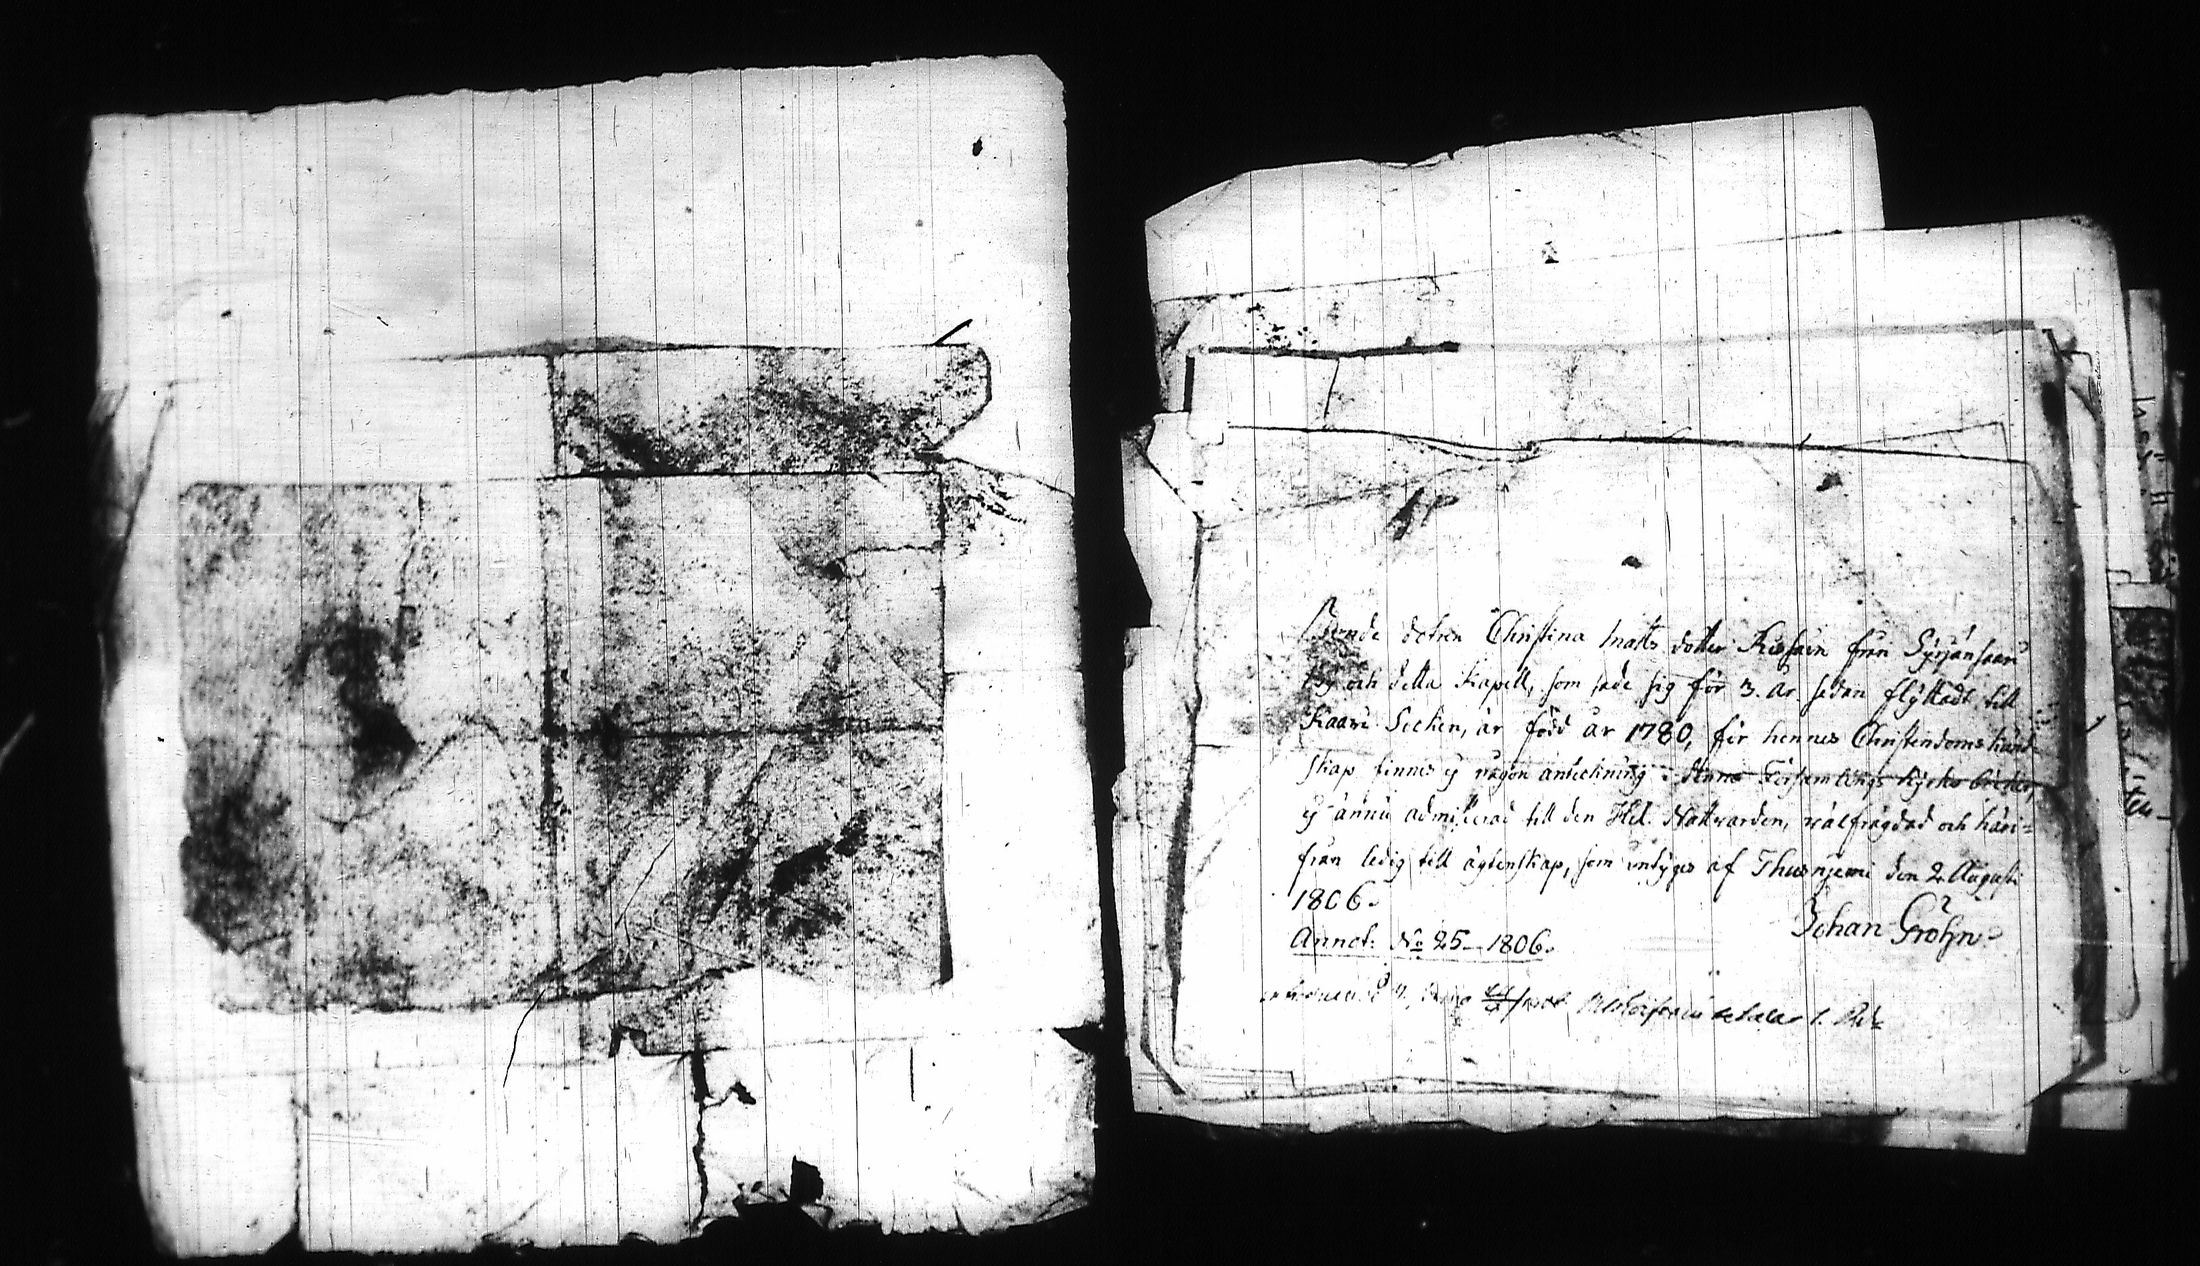 Bonde dotren Christina Matts dotter Kiesarin från Syrjänsaari
by och detta Kapell, som sade sig för 3. år sedan flyttadt till
Kaavi Sochn, är född år 1780, för hennes Christendoms kund-
skap finnes ej någon anteckning i denna Församlings Kyrko böcker,
ej ännu admitterad till den Hel. Nattvarden, välfrägdad och häri=
från ledig till ägtenskap, som intygas af Thusnjemi den 2 Augusti
1806.
Johan Gröhn
Annot: No 25 1806.
betalar 1.